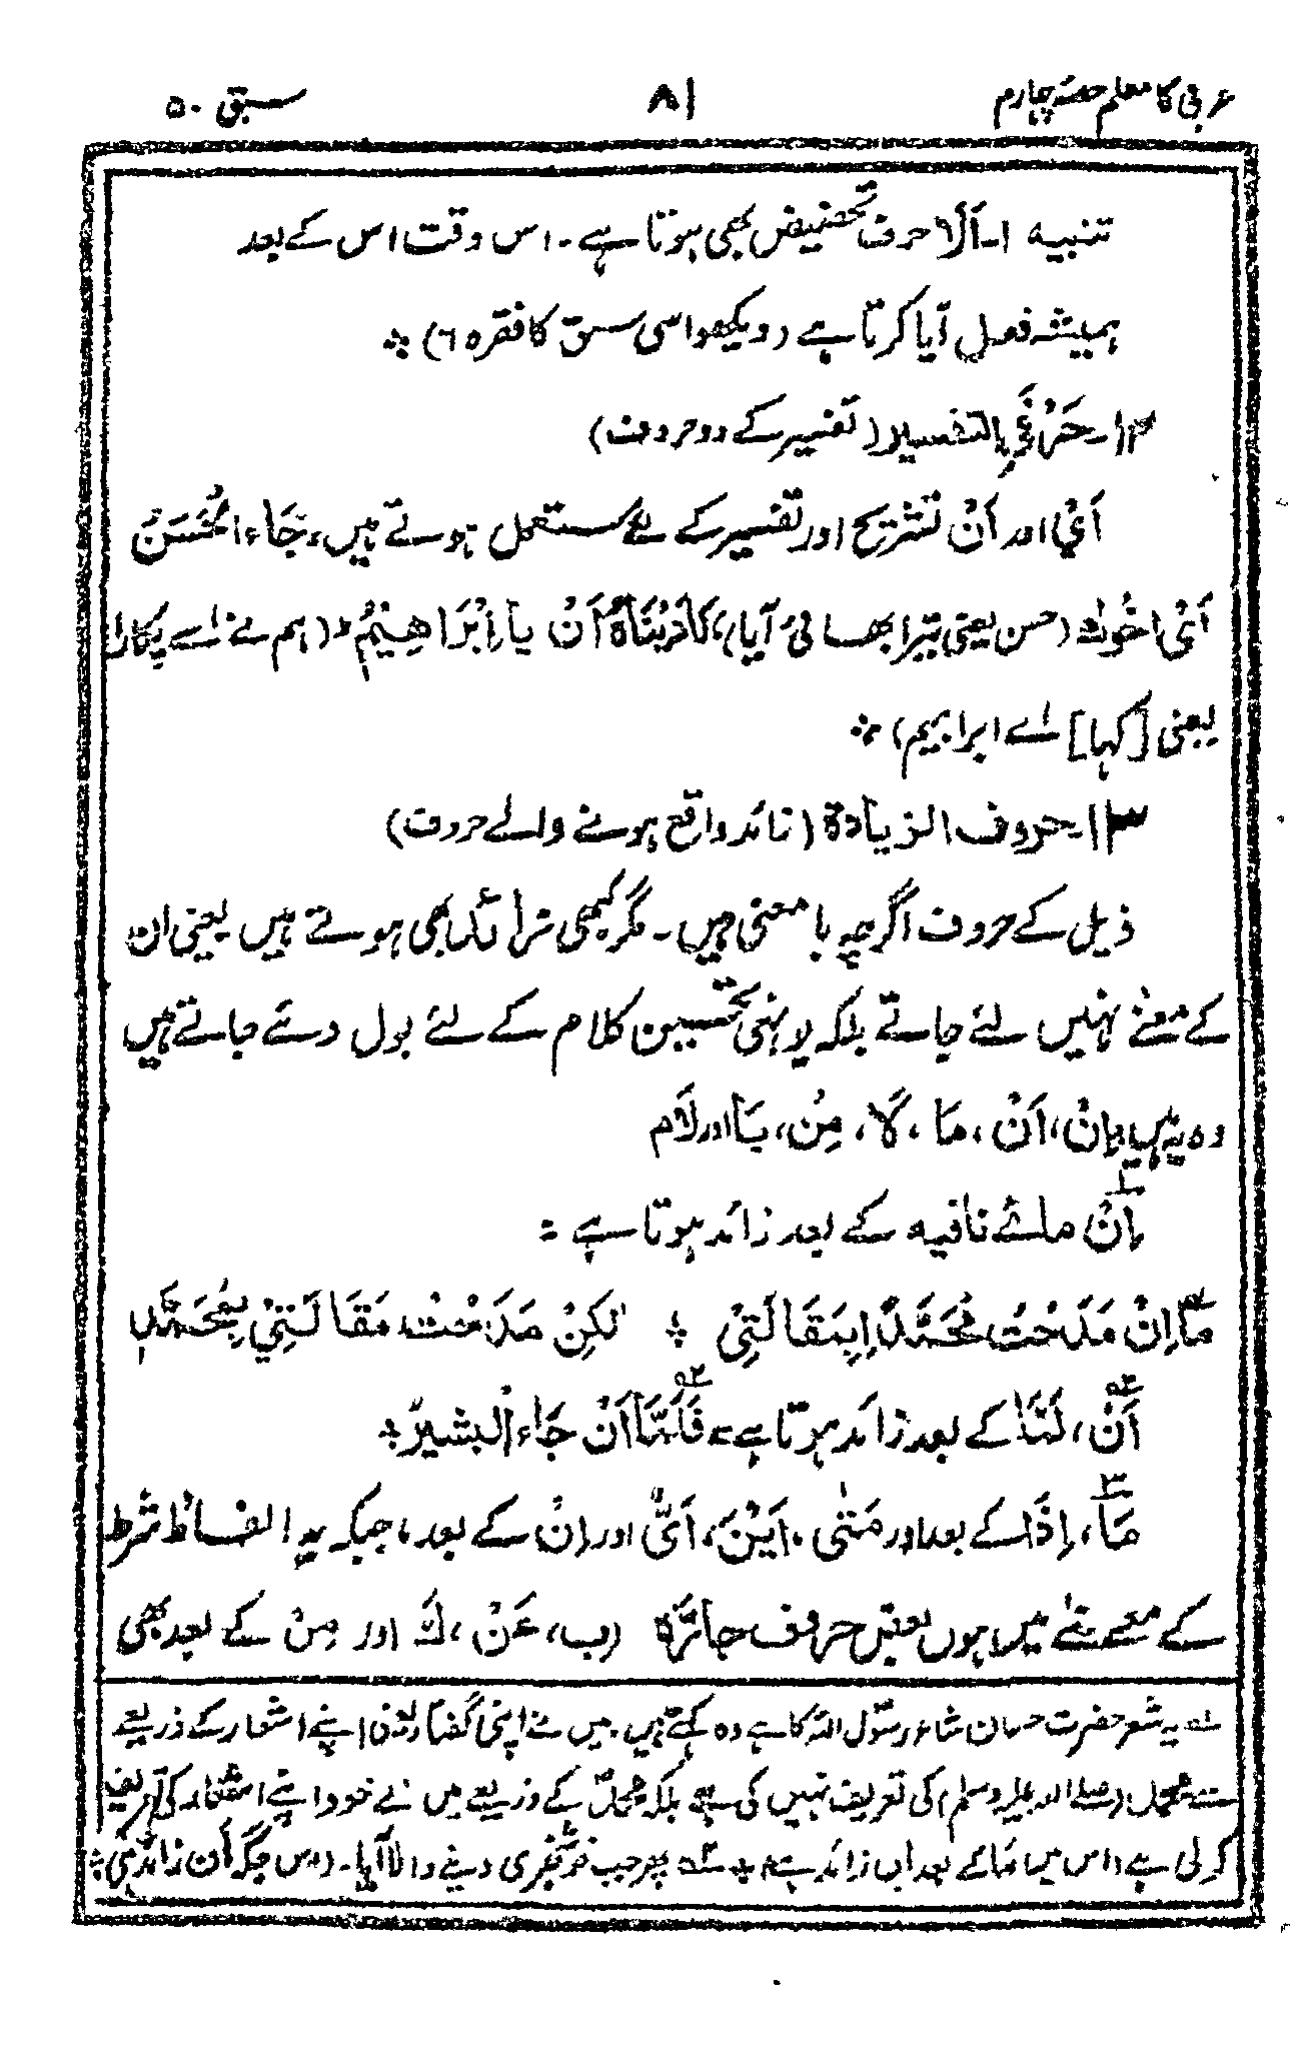 عربی کا معلم حصہ چہارم ۸۱ سبق ۵۰
تنبیہ ۱۔ اَلَا حرف تحضیض بھی ہوتا ہے۔ اس وقت اس کے بعد
ہمیشہ فعل آیا کرتا ہے (دیکھو اسی سبق کا فقرہ ۶) ❖
۱۲۔ حَرْفَیِ التفسیر (تفسیر کے دو حروف)
اَیْ اور اَنْ تشریح اور تفسیر کے لئے مستعمل ہوتے ہیں، جَاءَ الْحَسَنُ
اَیْ اَخُوْكَ (حسن یعنی تیرا بھائی آیا)، نَادَیْنَاهُ اَنْ یا اِبْرَاهِیْمُ (ہم نے اسے پکارا
یعنی [کہا] اے ابراہیم) ❖
۱۳۔ حروف الزیادة (زائد واقع ہونے والے حروف)
ذیل کے حروف اگرچہ با معنی ہیں۔ مگر کبھی زائد بھی ہوتے ہیں یعنی ان
کے معنے نہیں لئے جاتے بلکہ یونہی تحسین کلام کے لئے بول دئے جاتے ہیں
وہ یہ ہیں اِنْ، اَنْ، مَا، لَا، مِنْ، بَا اور لَام
اِنْ مائے نافیہ کے بعد زائد ہوتا ہے :
مَا اِنْ مَدَحْتُ مُحَمَّدًا بِمَقَالَتِیْ ❖ لٰکِنْ مَدَحْتُ مَقَالَتِیْ بِمُحَمَّدٍ
اَنْ، لَمَّا کے بعد زائد ہوتا ہے = فَلَمَّا اَنْ جَاءَ الْبَشِیْرُ ❖
مَا، اِذَا کے بعد اور مَتٰی، اَیْنَ، اَیٌّ اور اِنْ کے بعد، جبکہ یہ الفاظ شرط
کے معنے میں ہوں بعض حروف جارّہ (ب، عَنْ، كَ اور مِنْ کے بعد بھی
۱؎ یہ شعر حضرت حسان شاعر رسول اللہ کا ہے وہ کہتے ہیں. میں نے اپنی گفتار (یعنی اپنے اشعار کے ذریعے
سے محمد (صلے اللہ علیہ وسلم) کی تعریف نہیں کی ہے بلکہ محمدؐ کے ذریعے میں نے خود اپنے اشعار کی تعریف
کر لی ہے (اس میں مَا کے بعد اِن زائد ہے) ❖ ۲؎ پھر جب خوشخبری دینے والا آیا۔ (اس جگہ اَن زائد ہے) ❖